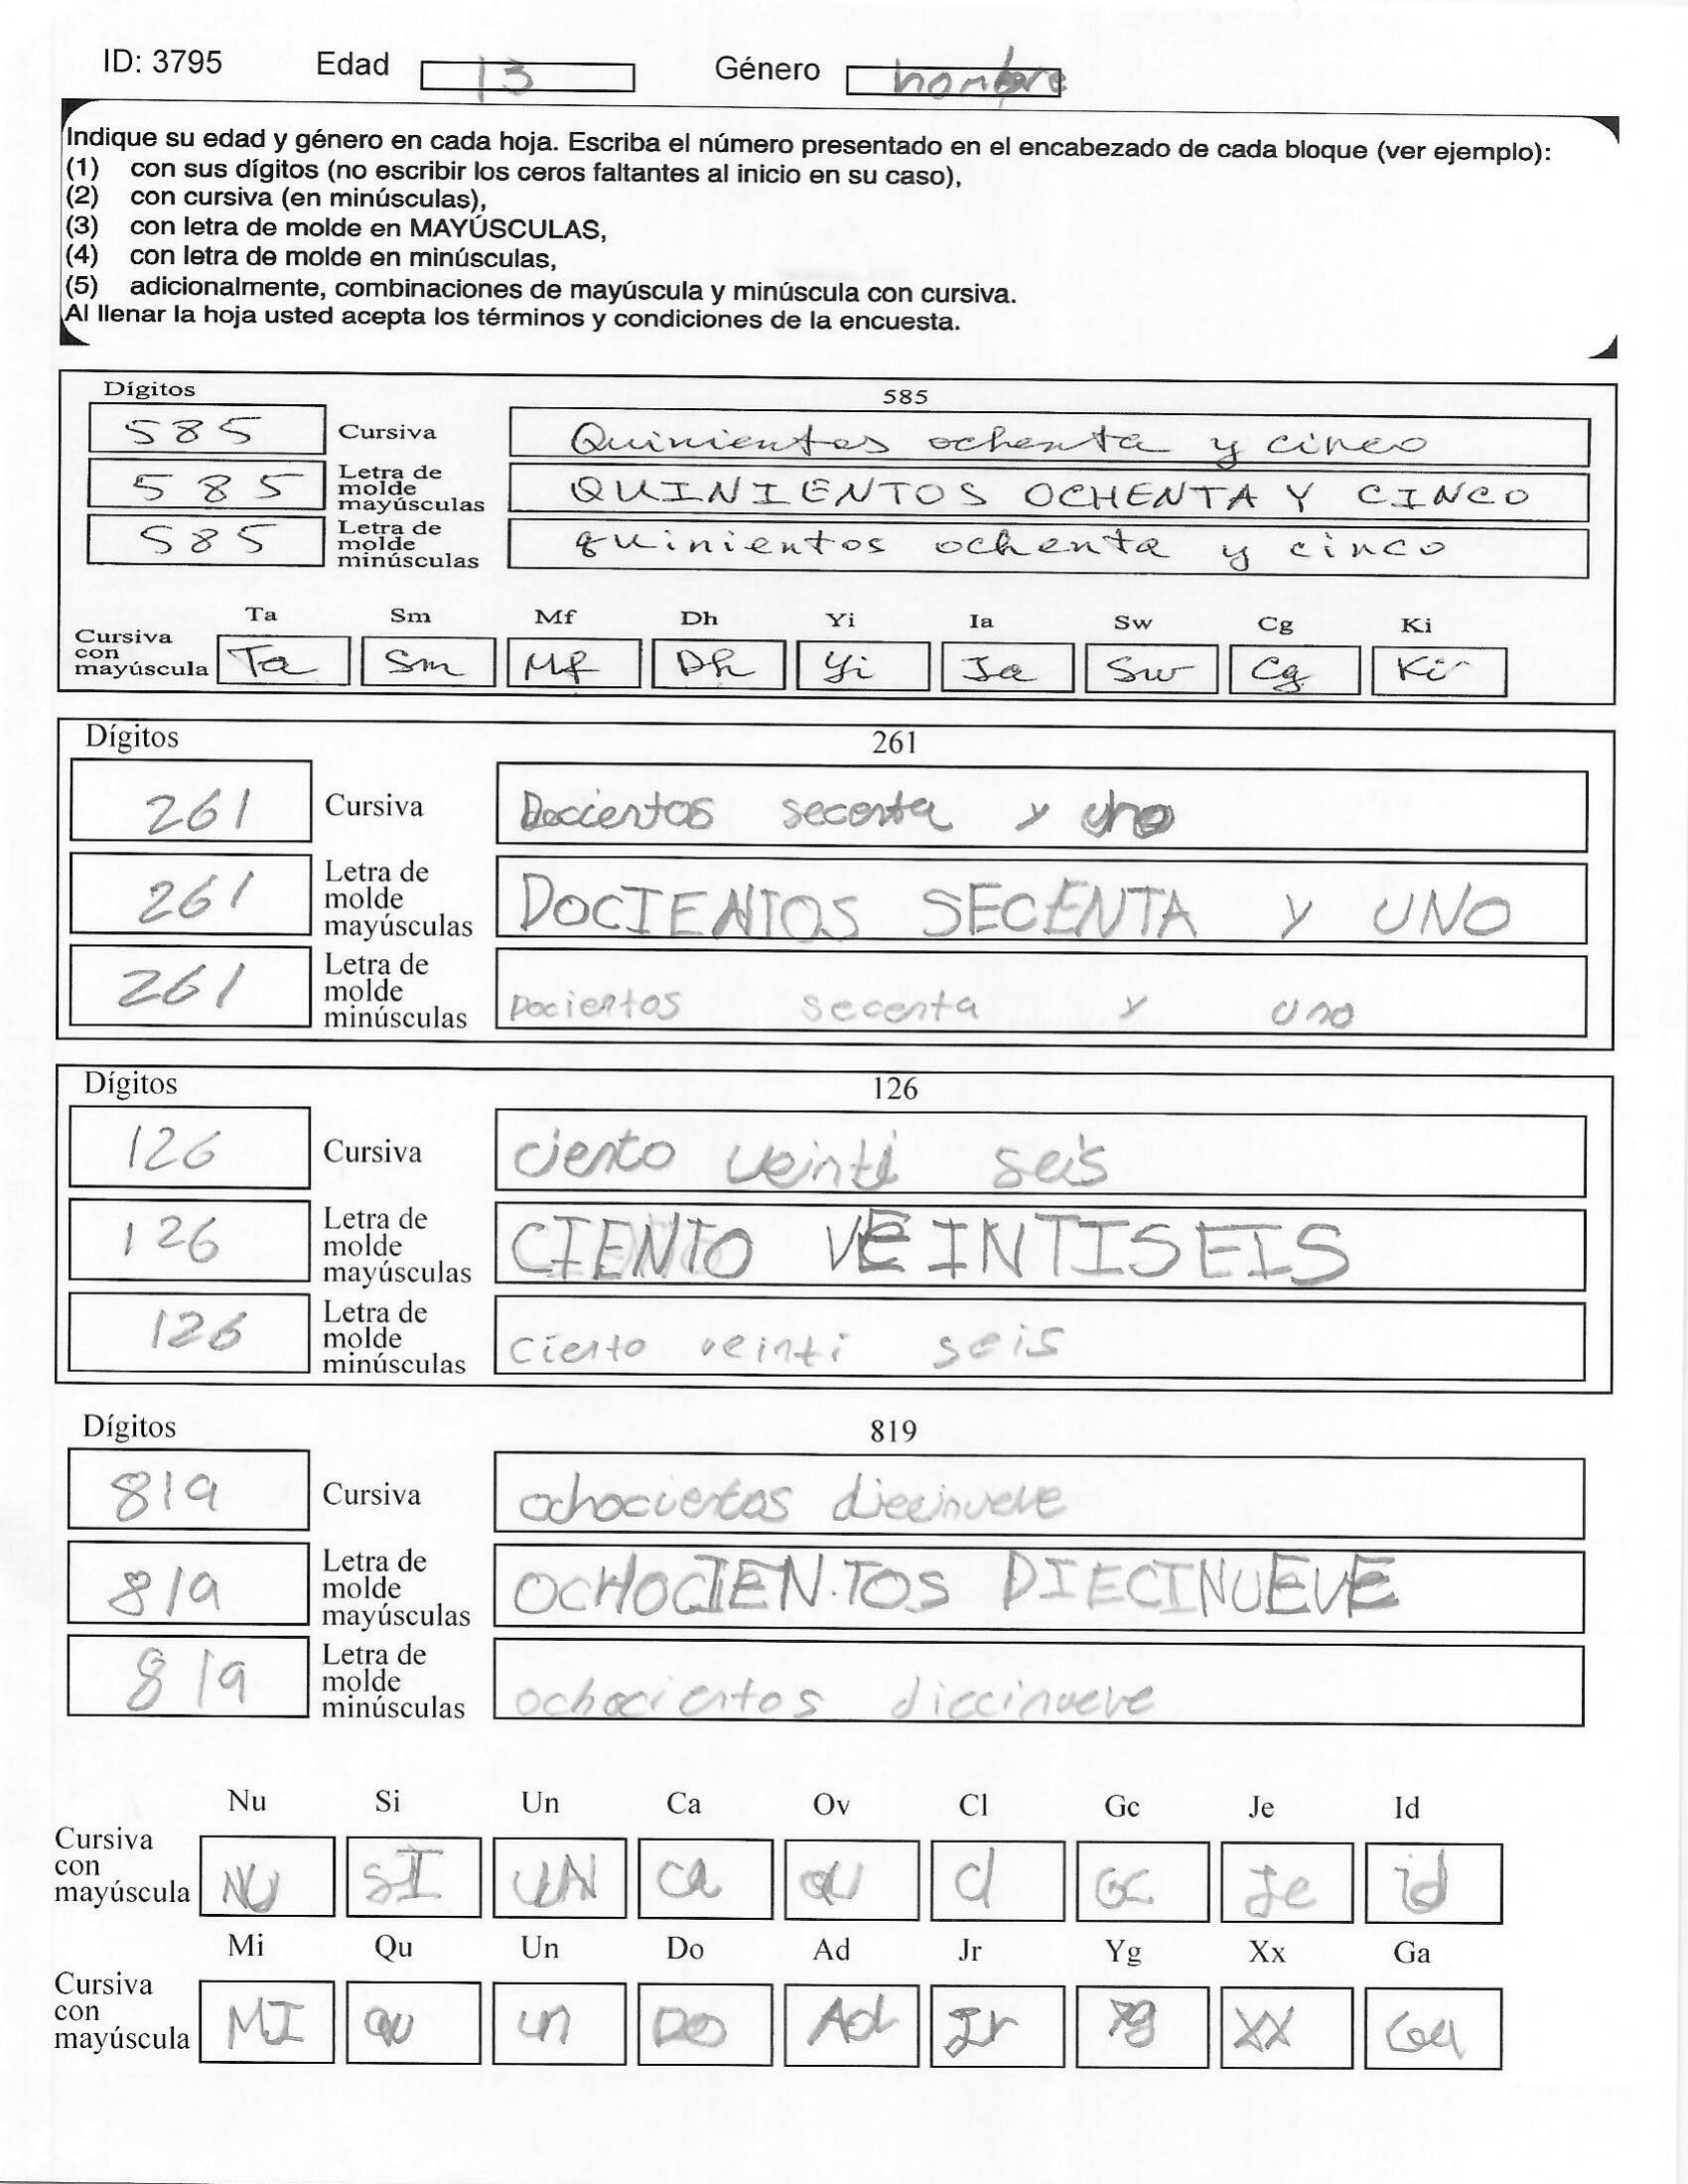 ID: 3795 Edad 13 Género hombre
Indique su edad y género en cada hoja. Escriba el número presentado en el encabezado de cada bloque (ver ejemplo):
(1) con sus dígitos (no escribir los ceros faltantes al inicio en su caso),
(2) con cursiva (en minúsculas),
(3) con letra de molde en MAYÚSCULAS,
(4) con letra de molde en minúsculas,
(5) adicionalmente, combinaciones de mayúscula y minúscula con cursiva.
Al llenar la hoja usted acepta los términos y condiciones de la encuesta.
Dígitos 585
585 Cursiva Quinientos ochenta y cinco
585 Letra de molde mayúsculas QUINIENTOS OCHENTA Y CINCO
585 Letra de molde minúsculas quinientos ochenta y cinco
Ta Sm Mf Dh Yi Ia Sw Cg Ki
Cursiva con mayúscula Ta Sm Mf Dh Yi Ia Sw Cg Ki
Dígitos 261
261 Cursiva Docientos secenta y uno
261 Letra de molde mayúsculas DOCIENTOS SECENTA Y UNO
261 Letra de molde minúsculas Docientos secenta y uno
Dígitos 126
126 Cursiva ciento veinti seis
126 Letra de molde mayúsculas CIENTO VEINTISEIS
126 Letra de molde minúsculas ciento veinti seis
Dígitos 819
819 Cursiva ochocientos diecinueve
819 Letra de molde mayúsculas OCHOCIEN.TOS DIECINUEVE
819 Letra de molde minúsculas ochocientos diecinueve
Nu Si Un Ca Ov Cl Gc Je Id
Cursiva con mayúscula NU SI UN Ca ov Cl GC Je id
Mi Qu Un Do Ad Jr Yg Xx Ga
Cursiva con mayúscula MI QU un DO Ad Jr Yg XX Ga